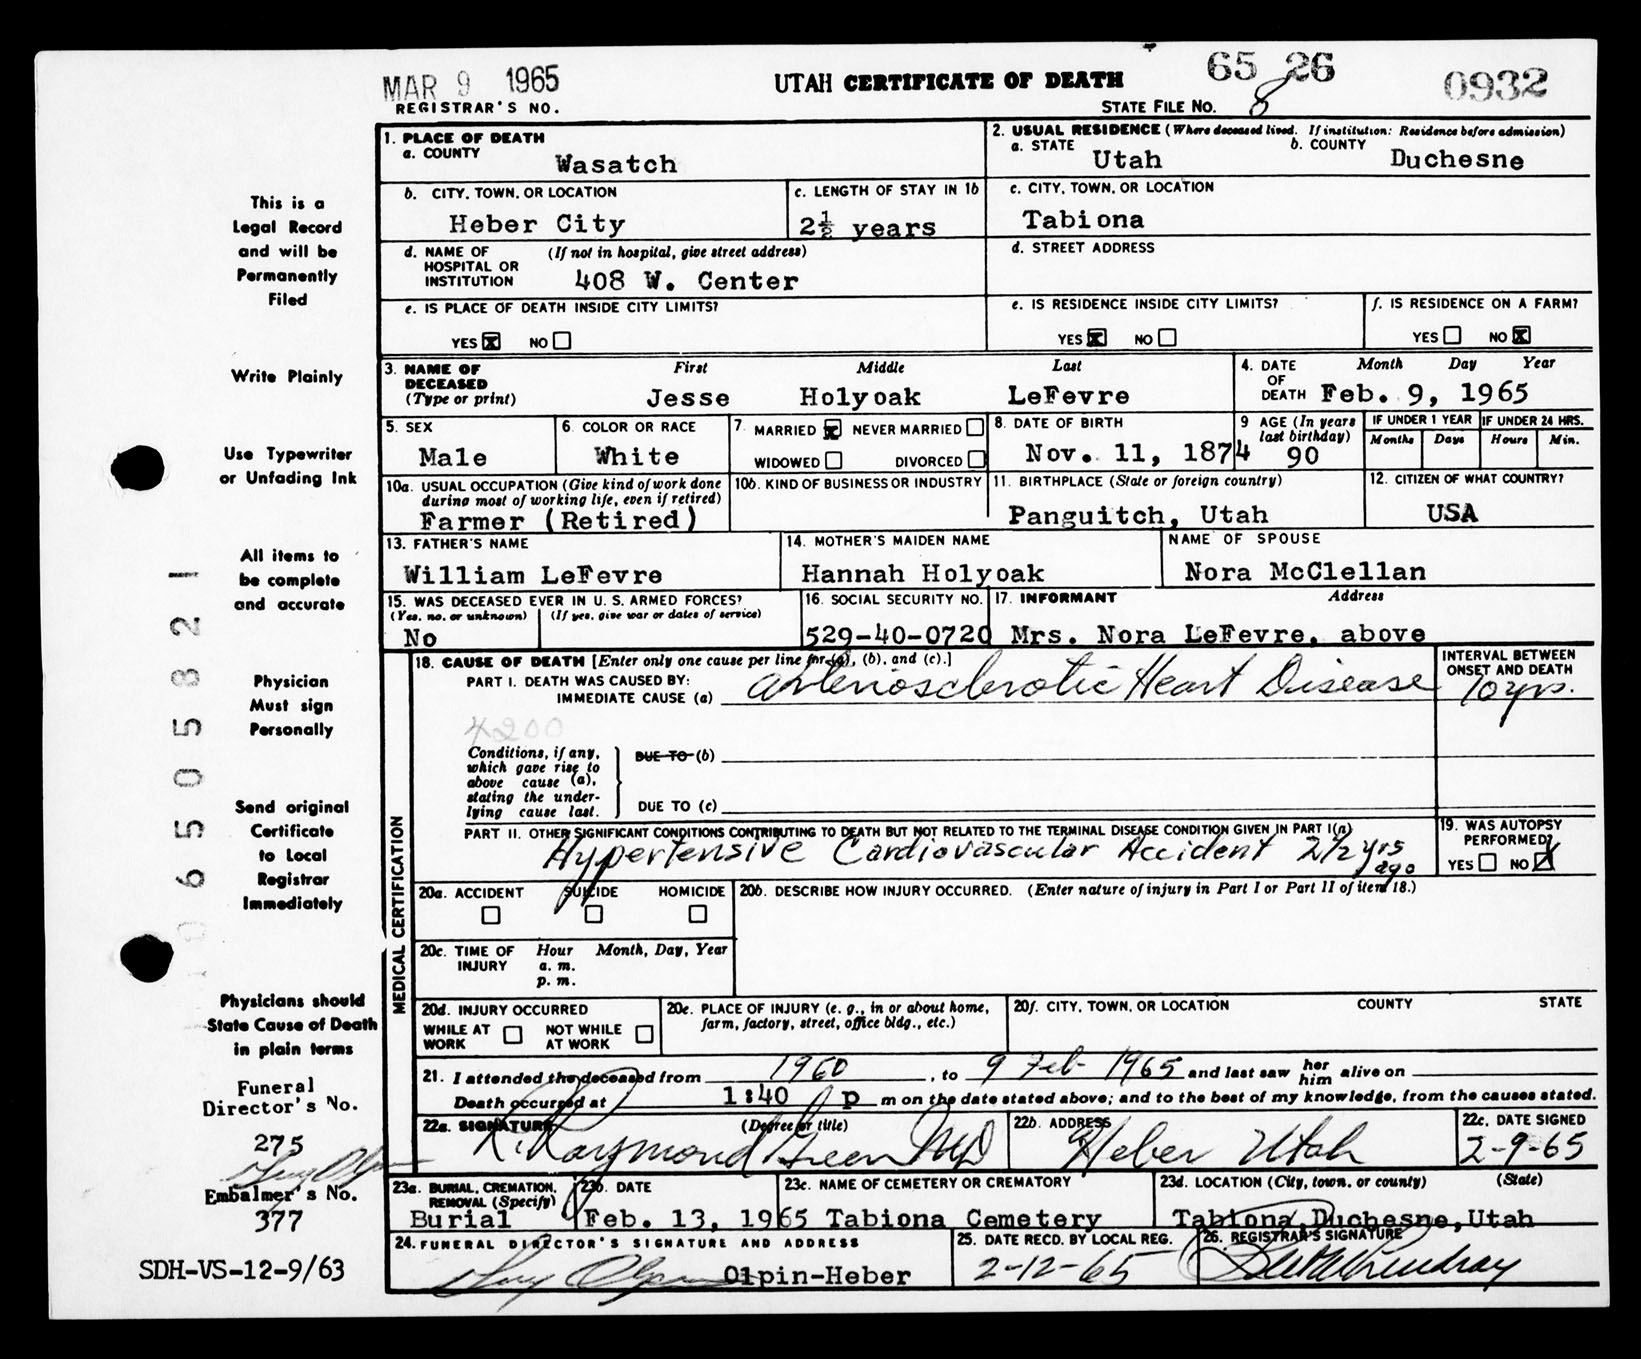 MAR 9 1965
REGISTRAR'S NO.
UTAH CERTIFICATE OF DEATH
65 26
STATE FILE NO. 8
0932
This is a
Legal Record
and will be
Permanently
Filed
Write Plainly
Use Typewriter
or Unfading Ink
All items to
be complete
and accurate
Physician
Must sign
Personally
Send original
Certificate
to Local
Registrar
Immediately
Physicians should
State Cause of Death
in plain terms
Funeral
Director's No.
275
Embalmer's No.
377
SDH-VS-12-9/63
1. PLACE OF DEATH
a. COUNTY
Wasatch
2. USUAL RESIDENCE (Where deceased lived. If institution: Residence before admission)
a. STATE b. COUNTY
Utah Duchesne
b. CITY, TOWN, OR LOCATION
Heber City
c. LENGTH OF STAY IN 1b
2½ years
c. CITY, TOWN, OR LOCATION
Tabiona
d. NAME OF (If not in hospital, give street address)
HOSPITAL OR
INSTITUTION 408 W. Center
d. STREET ADDRESS
e. IS PLACE OF DEATH INSIDE CITY LIMITS?
YES X NO
e. IS RESIDENCE INSIDE CITY LIMITS?
YES X NO
f. IS RESIDENCE ON A FARM?
YES NO X
3. NAME OF First Middle Last
DECEASED
(Type or print) Jesse Holyoak LeFevre
4. DATE Month Day Year
OF
DEATH Feb. 9, 1965
5. SEX
Male
6. COLOR OR RACE
White
7. MARRIED X NEVER MARRIED
WIDOWED DIVORCED
8. DATE OF BIRTH
Nov. 11, 1874
9 AGE (In years
last birthday)
90
IF UNDER 1 YEAR IF UNDER 24 HRS.
Months Days Hours Min.
10a. USUAL OCCUPATION (Give kind of work done
during most of working life, even if retired)
Farmer (Retired)
10b. KIND OF BUSINESS OR INDUSTRY
11. BIRTHPLACE (State or foreign country)
Panguitch, Utah
12. CITIZEN OF WHAT COUNTRY?
USA
13. FATHER'S NAME
William LeFevre
14. MOTHER'S MAIDEN NAME
Hannah Holyoak
NAME OF SPOUSE
Nora McClellan
15. WAS DECEASED EVER IN U. S. ARMED FORCES?
(Yes, no, or unknown) (If yes, give war or dates of service)
No
16. SOCIAL SECURITY NO.
529-40-0720
17. INFORMANT Address
Mrs. Nora LeFevre, above
MEDICAL CERTIFICATION
18. CAUSE OF DEATH [Enter only one cause per line for (a), (b), and (c).]
PART I. DEATH WAS CAUSED BY:
IMMEDIATE CAUSE (a) Arteriosclerotic Heart Disease
INTERVAL BETWEEN
ONSET AND DEATH
10 yrs.
4200
Conditions, if any,
which gave rise to
above cause (a),
stating the under-
lying cause last.
DUE TO (b)
DUE TO (c)
PART II. OTHER SIGNIFICANT CONDITIONS CONTRIBUTING TO DEATH BUT NOT RELATED TO THE TERMINAL DISEASE CONDITION GIVEN IN PART I(a)
Hypertensive Cardiovascular Accident 2½ yrs
ago
19. WAS AUTOPSY
PERFORMED?
YES NO X
20a. ACCIDENT SUICIDE HOMICIDE
20b. DESCRIBE HOW INJURY OCCURRED. (Enter nature of injury in Part I or Part II of item 18.)
20c. TIME OF Hour Month, Day, Year
INJURY a. m.
p. m.
20d. INJURY OCCURRED
WHILE AT NOT WHILE
WORK AT WORK
20e. PLACE OF INJURY (e. g., in or about home,
farm, factory, street, office bldg., etc.)
20f. CITY, TOWN, OR LOCATION COUNTY STATE
21. I attended the deceased from 1960, to 9 Feb 1965 and last saw her him alive on
Death occurred at 1:40 p m on the date stated above; and to the best of my knowledge, from the causes stated.
22a. SIGNATURE (Degree or title)
R. Raymond Green MD
22b. ADDRESS
Heber Utah
22c. DATE SIGNED
2-9-65
23a. BURIAL, CREMATION,
REMOVAL (Specify)
Burial
23b. DATE
Feb. 13, 1965
23c. NAME OF CEMETERY OR CREMATORY
Tabiona Cemetery
23d. LOCATION (City, town, or county) (State)
Tabiona, Duchesne, Utah
24. FUNERAL DIRECTOR'S SIGNATURE AND ADDRESS
Olpin-Heber
25. DATE RECD. BY LOCAL REG.
2-12-65
26. REGISTRAR'S SIGNATURE